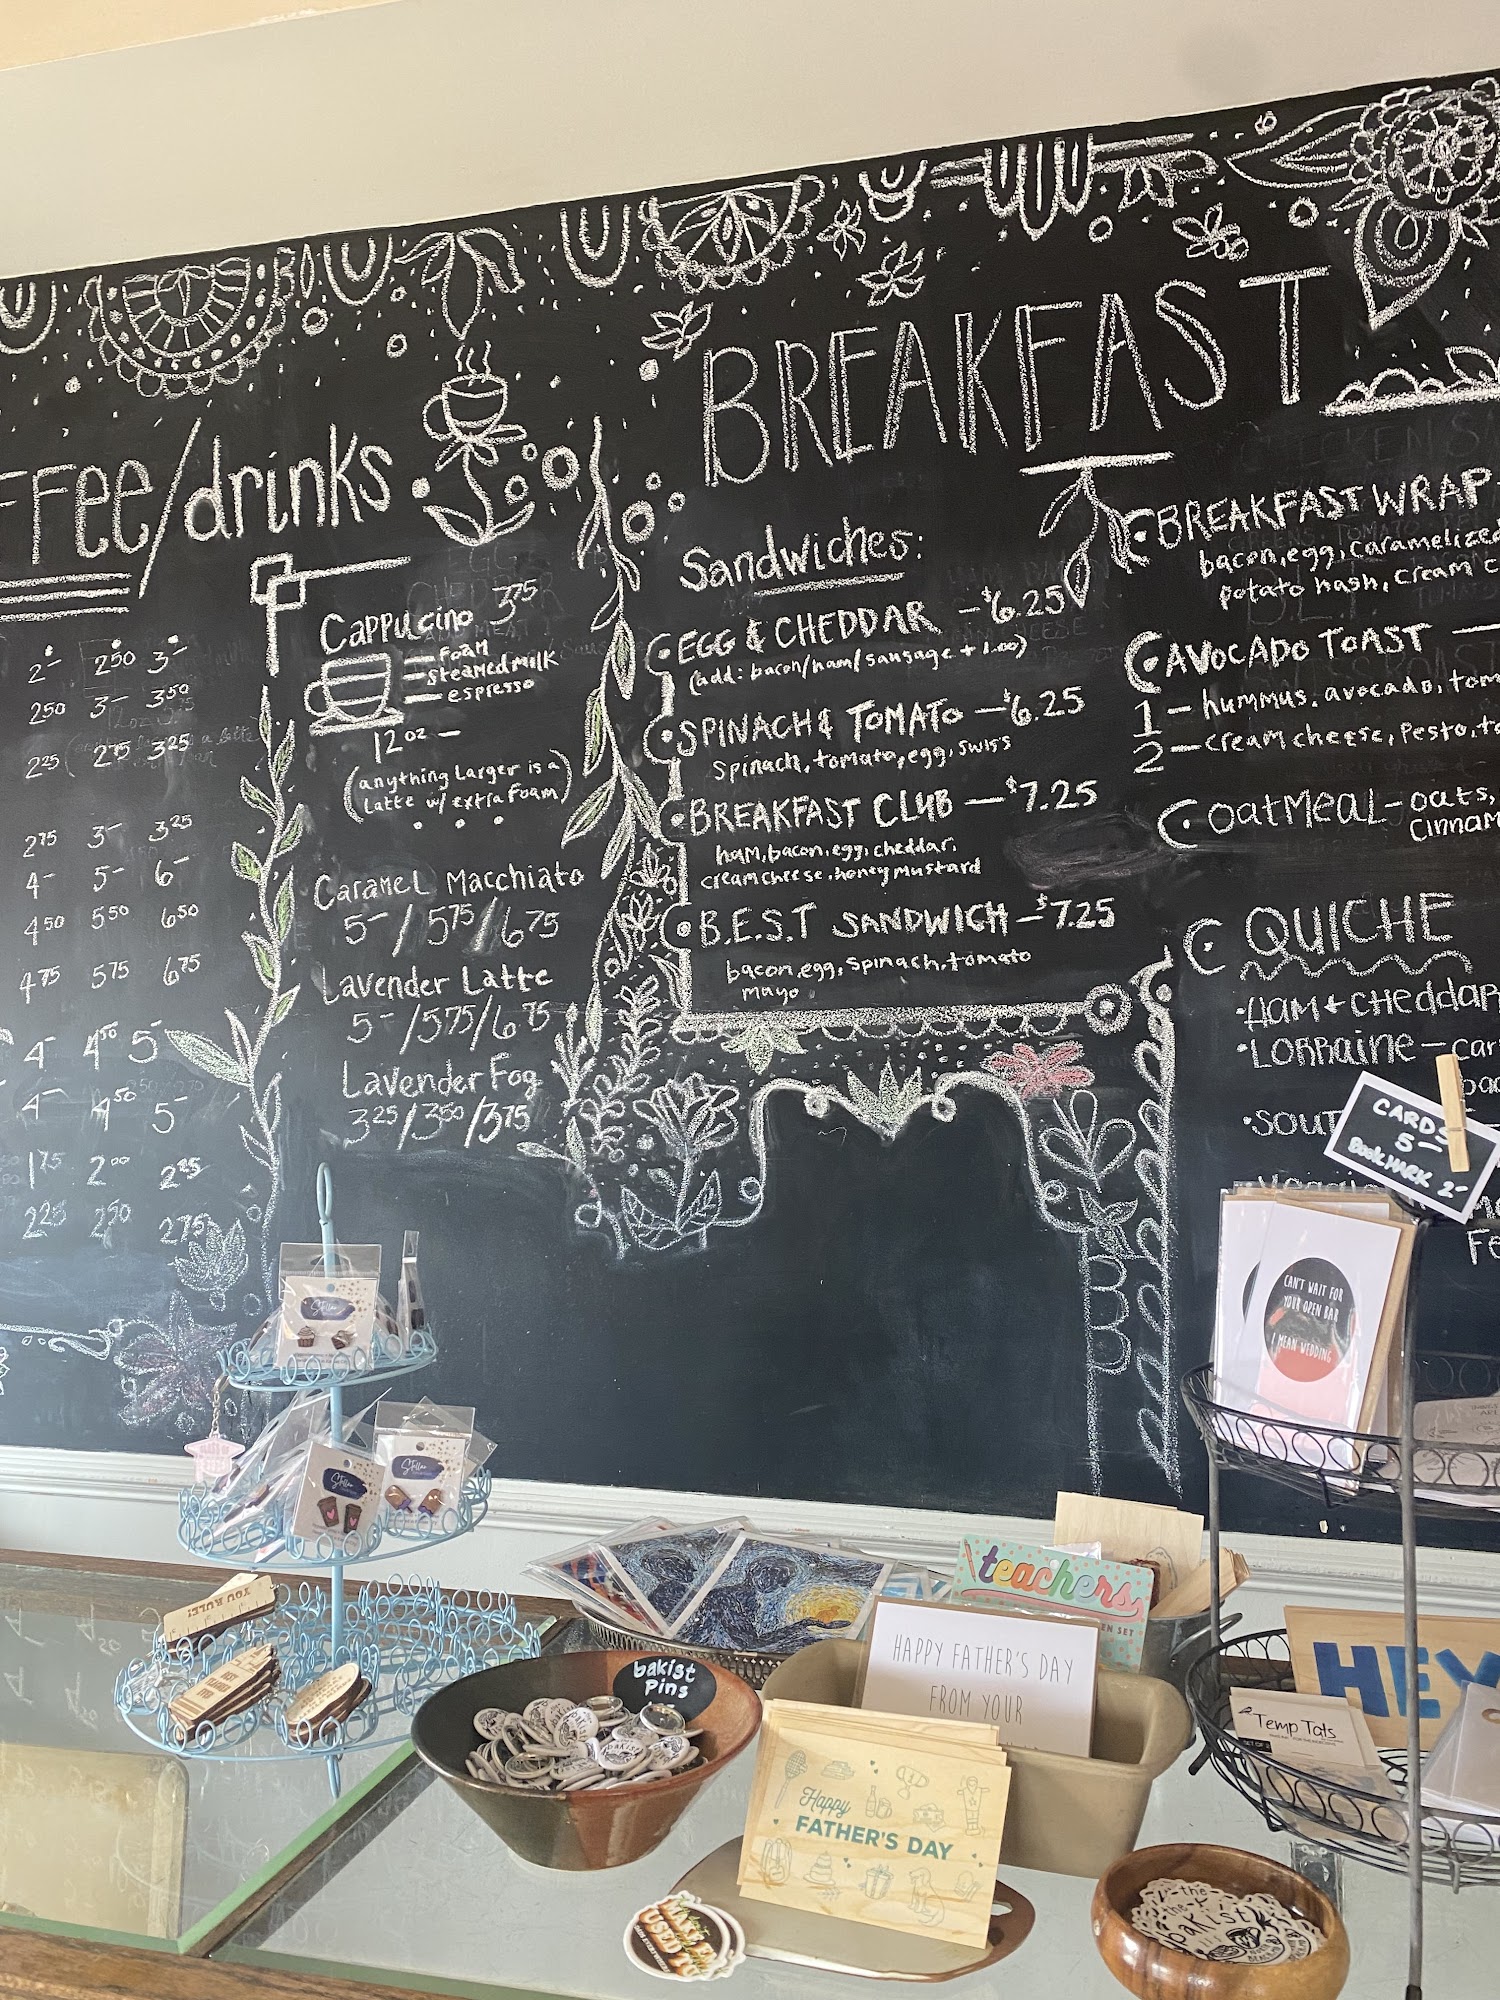 ffee/drinks
2- 250 3-
250 3- 350
225 275 325
275 3- 325
4- 5- 6-
450 550 650
475 575 675
4- 450 5-
4- 450 5-
175 200 225
225 250 275
Cappucino 375
foam
steamed milk
espresso
12oz -
(anything larger is a
latte w/ extra foam)
Caramel Macchiato
5-/575/675
Lavender Latte
5-/575/675
Lavender Fog
325/350/375
BREAKFAST
Sandwiches:
EGG & CHEDDAR - $6.25
(add: bacon/ham/sausage + 1.00)
SPINACH & TOMATO - $6.25
spinach, tomato, egg, swiss
BREAKFAST CLUB - $7.25
ham, bacon, egg, cheddar,
cream cheese, honey mustard
B.E.S.T SANDWICH - $7.25
bacon, egg, spinach, tomato
mayo
BREAKFAST WRAP
bacon, egg, caramelized
potato hash, cream c
AVOCADO TOAST -
1 - hummus, avocado, tom
2 - cream cheese, pesto, to
OATMEAL - oats,
cinnam
QUICHE
•HAM + CHEDDAR
•LORRAINE - car
•SOUT
CARDS
5-
BOOKMARK 2-
CAN'T WAIT FOR
YOUR OPEN BAR
I MEAN WEDDING
Stellar
Stellar
Stellar
YOU RULE!
BEST
TEACHER
EVER
teachers
EN SET
HAPPY FATHER'S DAY
FROM YOUR
bakist
pins
Happy
FATHER'S DAY
HEY
Temp Tats
SET OF 2
the
bakist
MAKE EM
USED TO